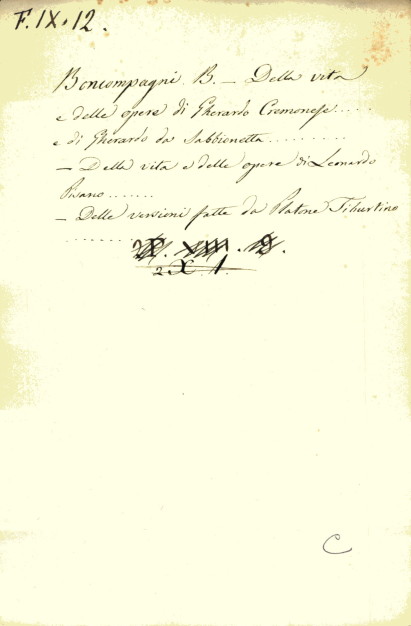 F. IX. 12.
Boncompagni B. — Della vita
e delle opere di Gherardo Cremonese.....
e di Gherardo da Sabbionetta.........
— Della vita e delle opere di Leonardo
Pisano.......
— Delle versioni fatte da Platone Tiburtino
........
2 X. 1.
C